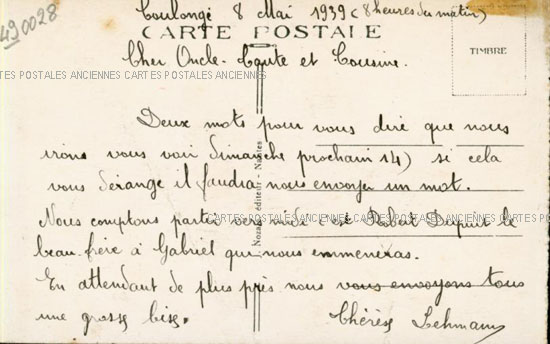 490028
Coulongé 8 Mai 1939 (8 heures du matin)
CARTE POSTALE
TIMBRE
Cher Oncle Tante et Cousine.
CARTES POSTALES ANCIENNES CARTES POSTALES ANCIENNES
Deux mots pour vous dire que nous
irons vous voir dimanche prochain 14) si cela
vous dérange il faudra nous envoyer un mot.
Nozais, éditeur - Nantes
Nous comptons partir vers midi Robert Dupuit le
CARTES POSTALES ANCIENNES CARTES POSTALES ANCIENNES CARTES POSTALES
beau-frère à Gabriel qui nous emmeneras.
En attendant de plus près nous vous envoyons tous
une grosse bise.
Thérèse Lehmann